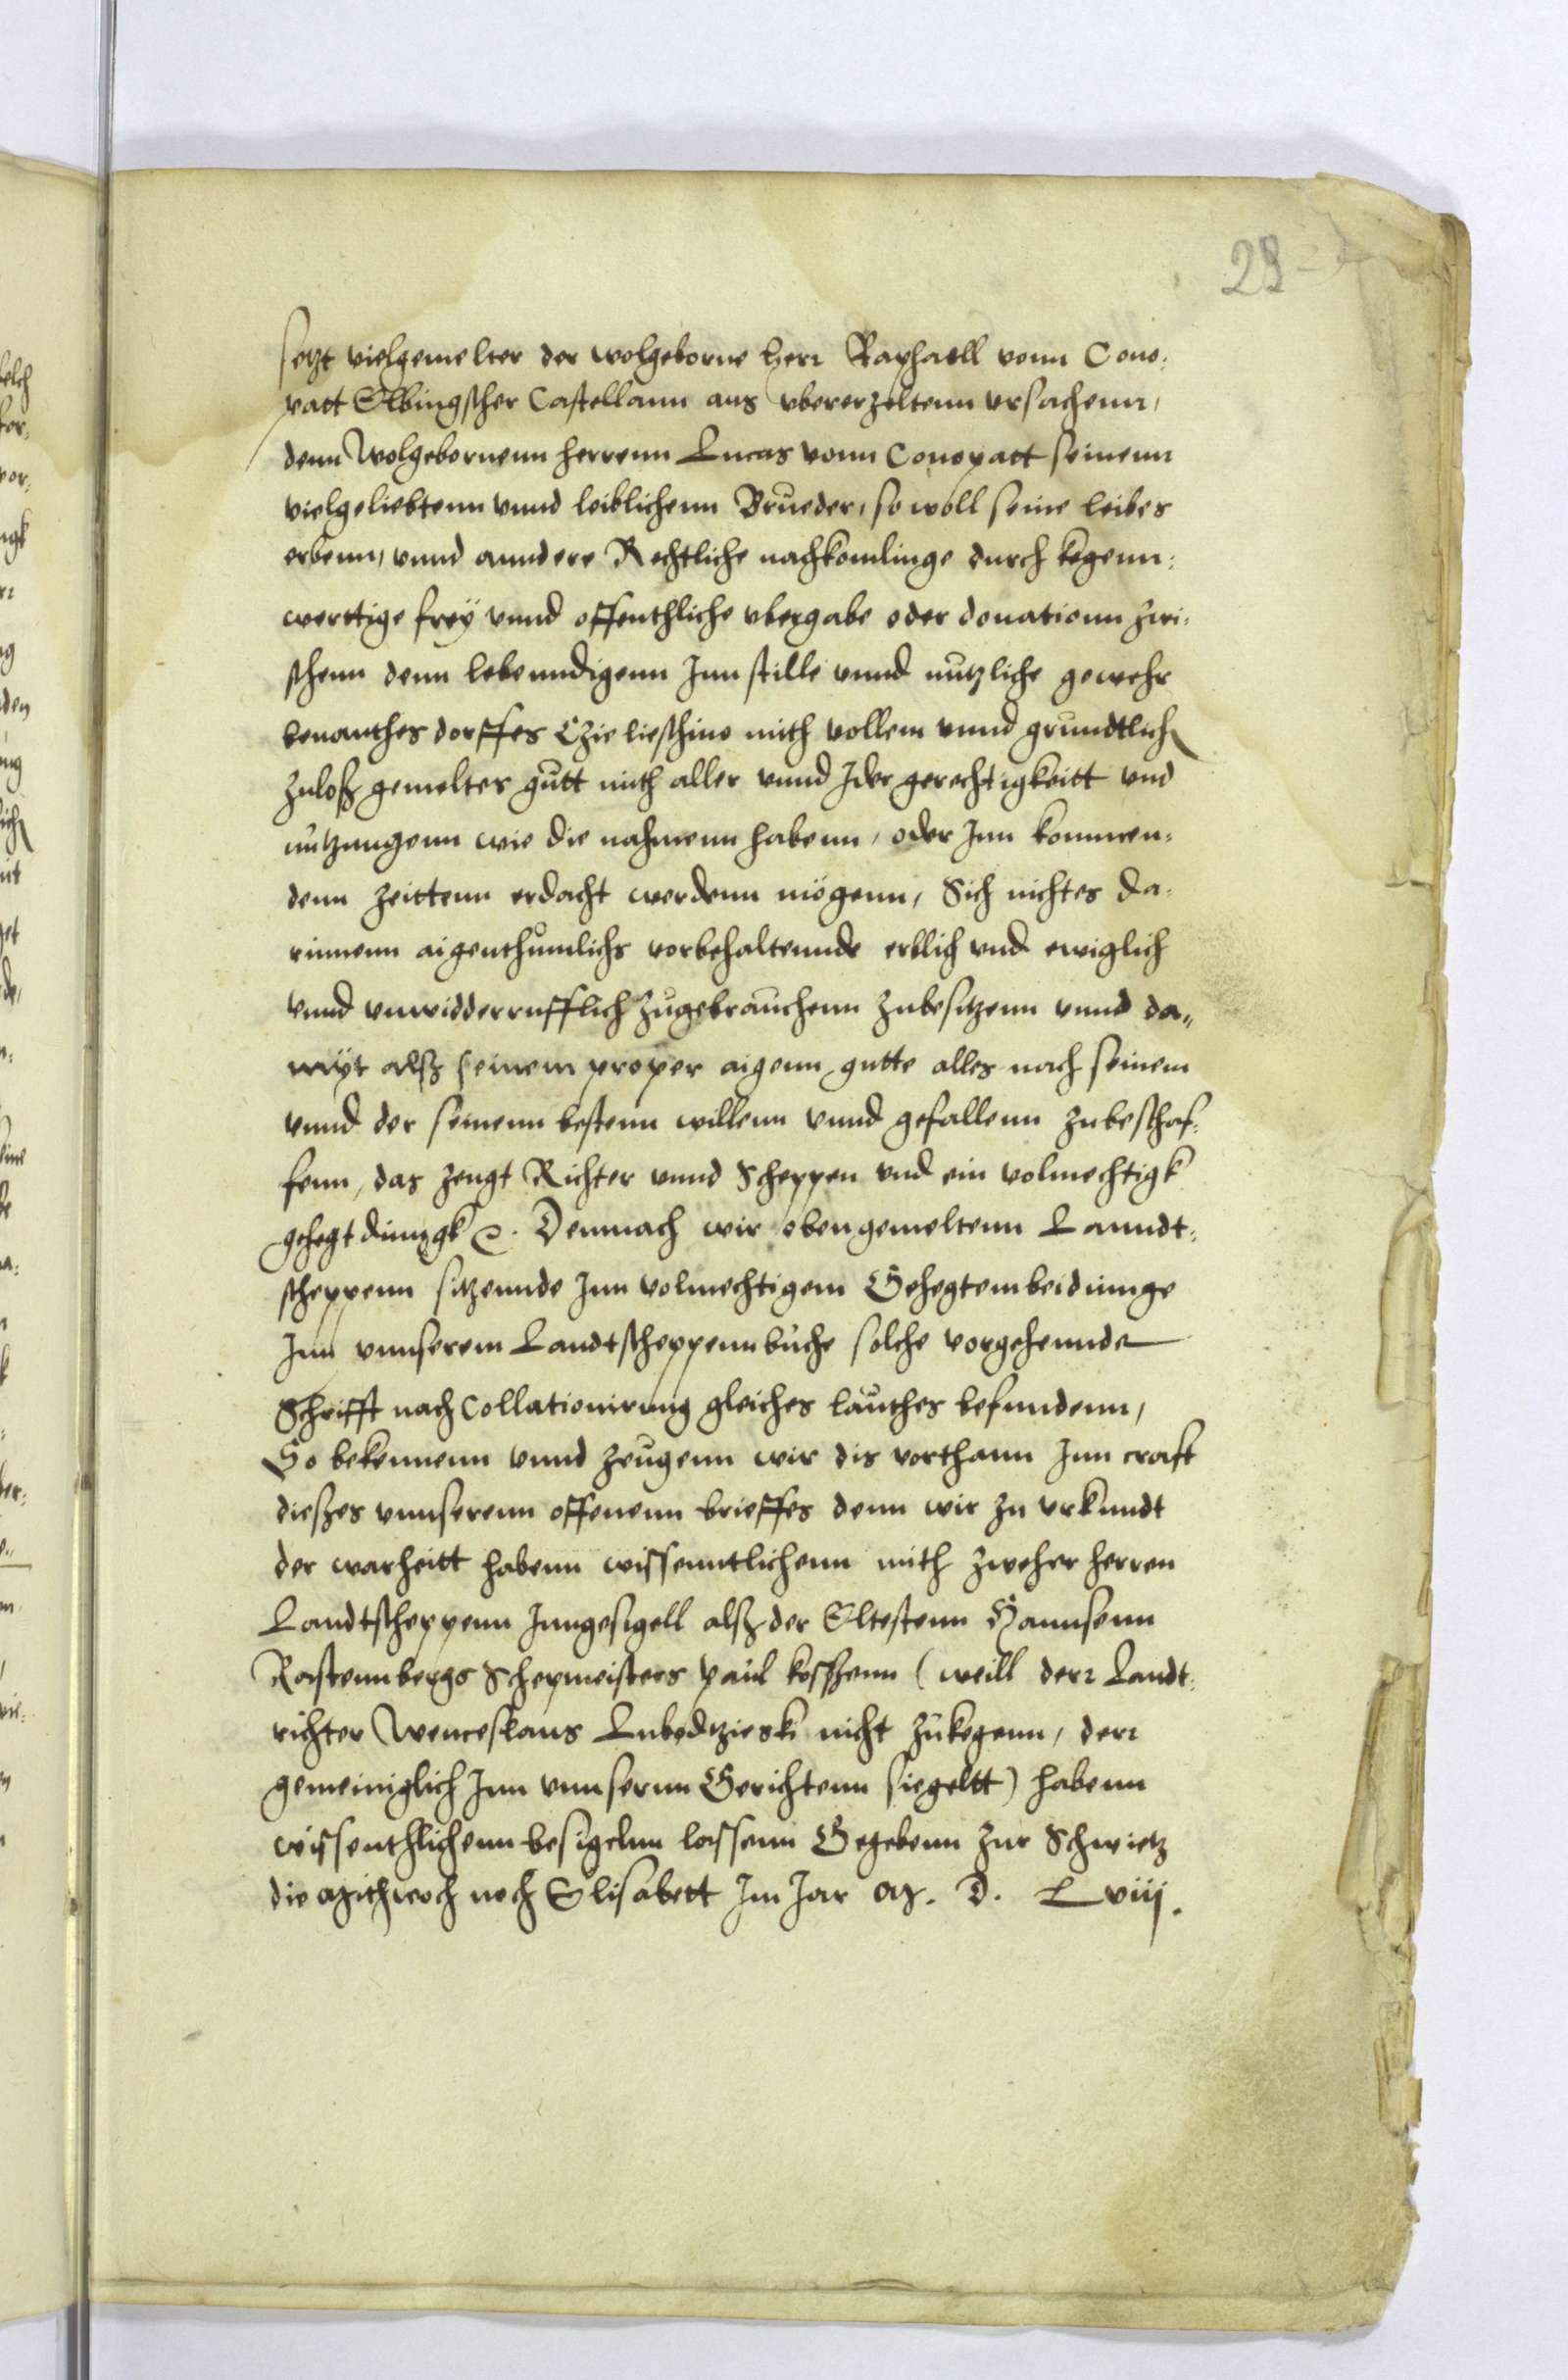 29
setzt vielgemelter der wolgeborne herr Raphaell vonn Cono-
patt Elbingscher Castellann aus vbererzeltenn vrsachenn,
denn Wolgebornenn herrenn Lucas vonn Conopatt seinenn
vielgeliebtenn vnnd leiblichenn Brueder, so woll seine leibes
erbenn, vnnd anndere Rechtliche nachkomlinge durch kegenn-
werttige freÿ vnnd offenthliche vbergabe oder donationn zwi-
schenn denn lebenndigenn Inn stille vnnd nutzliche gewehr
benanthes dorffes Czielieschine mith vollem vnnd grundtlich
zulosz gemeltes gutt mith aller vnnd Ider gerechtigkeitt vnd
nutzungenn wie die nahmenn habenn, oder Inn kommen-
denn zeittenn erdacht werdenn mögenn, Sich nichtes da-
rinnenn aigenthumlichs vorbehaltennde erblich vnd ewiglich
vnnd vnwidderrufflich zugebrauchenn zubesitzenn vnnd da-
mÿt alsz seinem proper aigenn gutte alles nach seinem
vnnd der seinenn bestenn willenn vnnd gefallenn zubeschaf-
fenn, das zeugt Richter vnnd Scheppen vnd ein volmechtigk
gehegt dinngk. Demnach wir obengemeltenn Lanndt-
scheppenn sitzennde Inn volmechtigem Gehegtem beidinnge
Inn vnnserem Landtscheppennbuche solche vorgehennde
Schrifft nach Collationirung gleiches lauthes befundenn,
So bekennenn vnnd zeugenn wir dis vorthann Inn craft
dieszes vnnserenn offenenn brieffes denn wir zu vrkundt
der warheitt habenn wissenntlichenn mith zweher herren
Landtscheppenn Inngesigell alsz der Eltestenn Hannsenn
Rastennbergs Schepmeisters Paul kosszenn (weill derr Landt-
richter Wenceslaus Lubodzieski nicht zukegenn, derr
gemeiniglich Inn vnnsernn Gerichtenn siegeltt) habenn
wissenthlichenn besigelnn lassenn Gegebenn zur Schwietz
die Mithwoch noch Elisabett Im Jar M. D. Lviij.